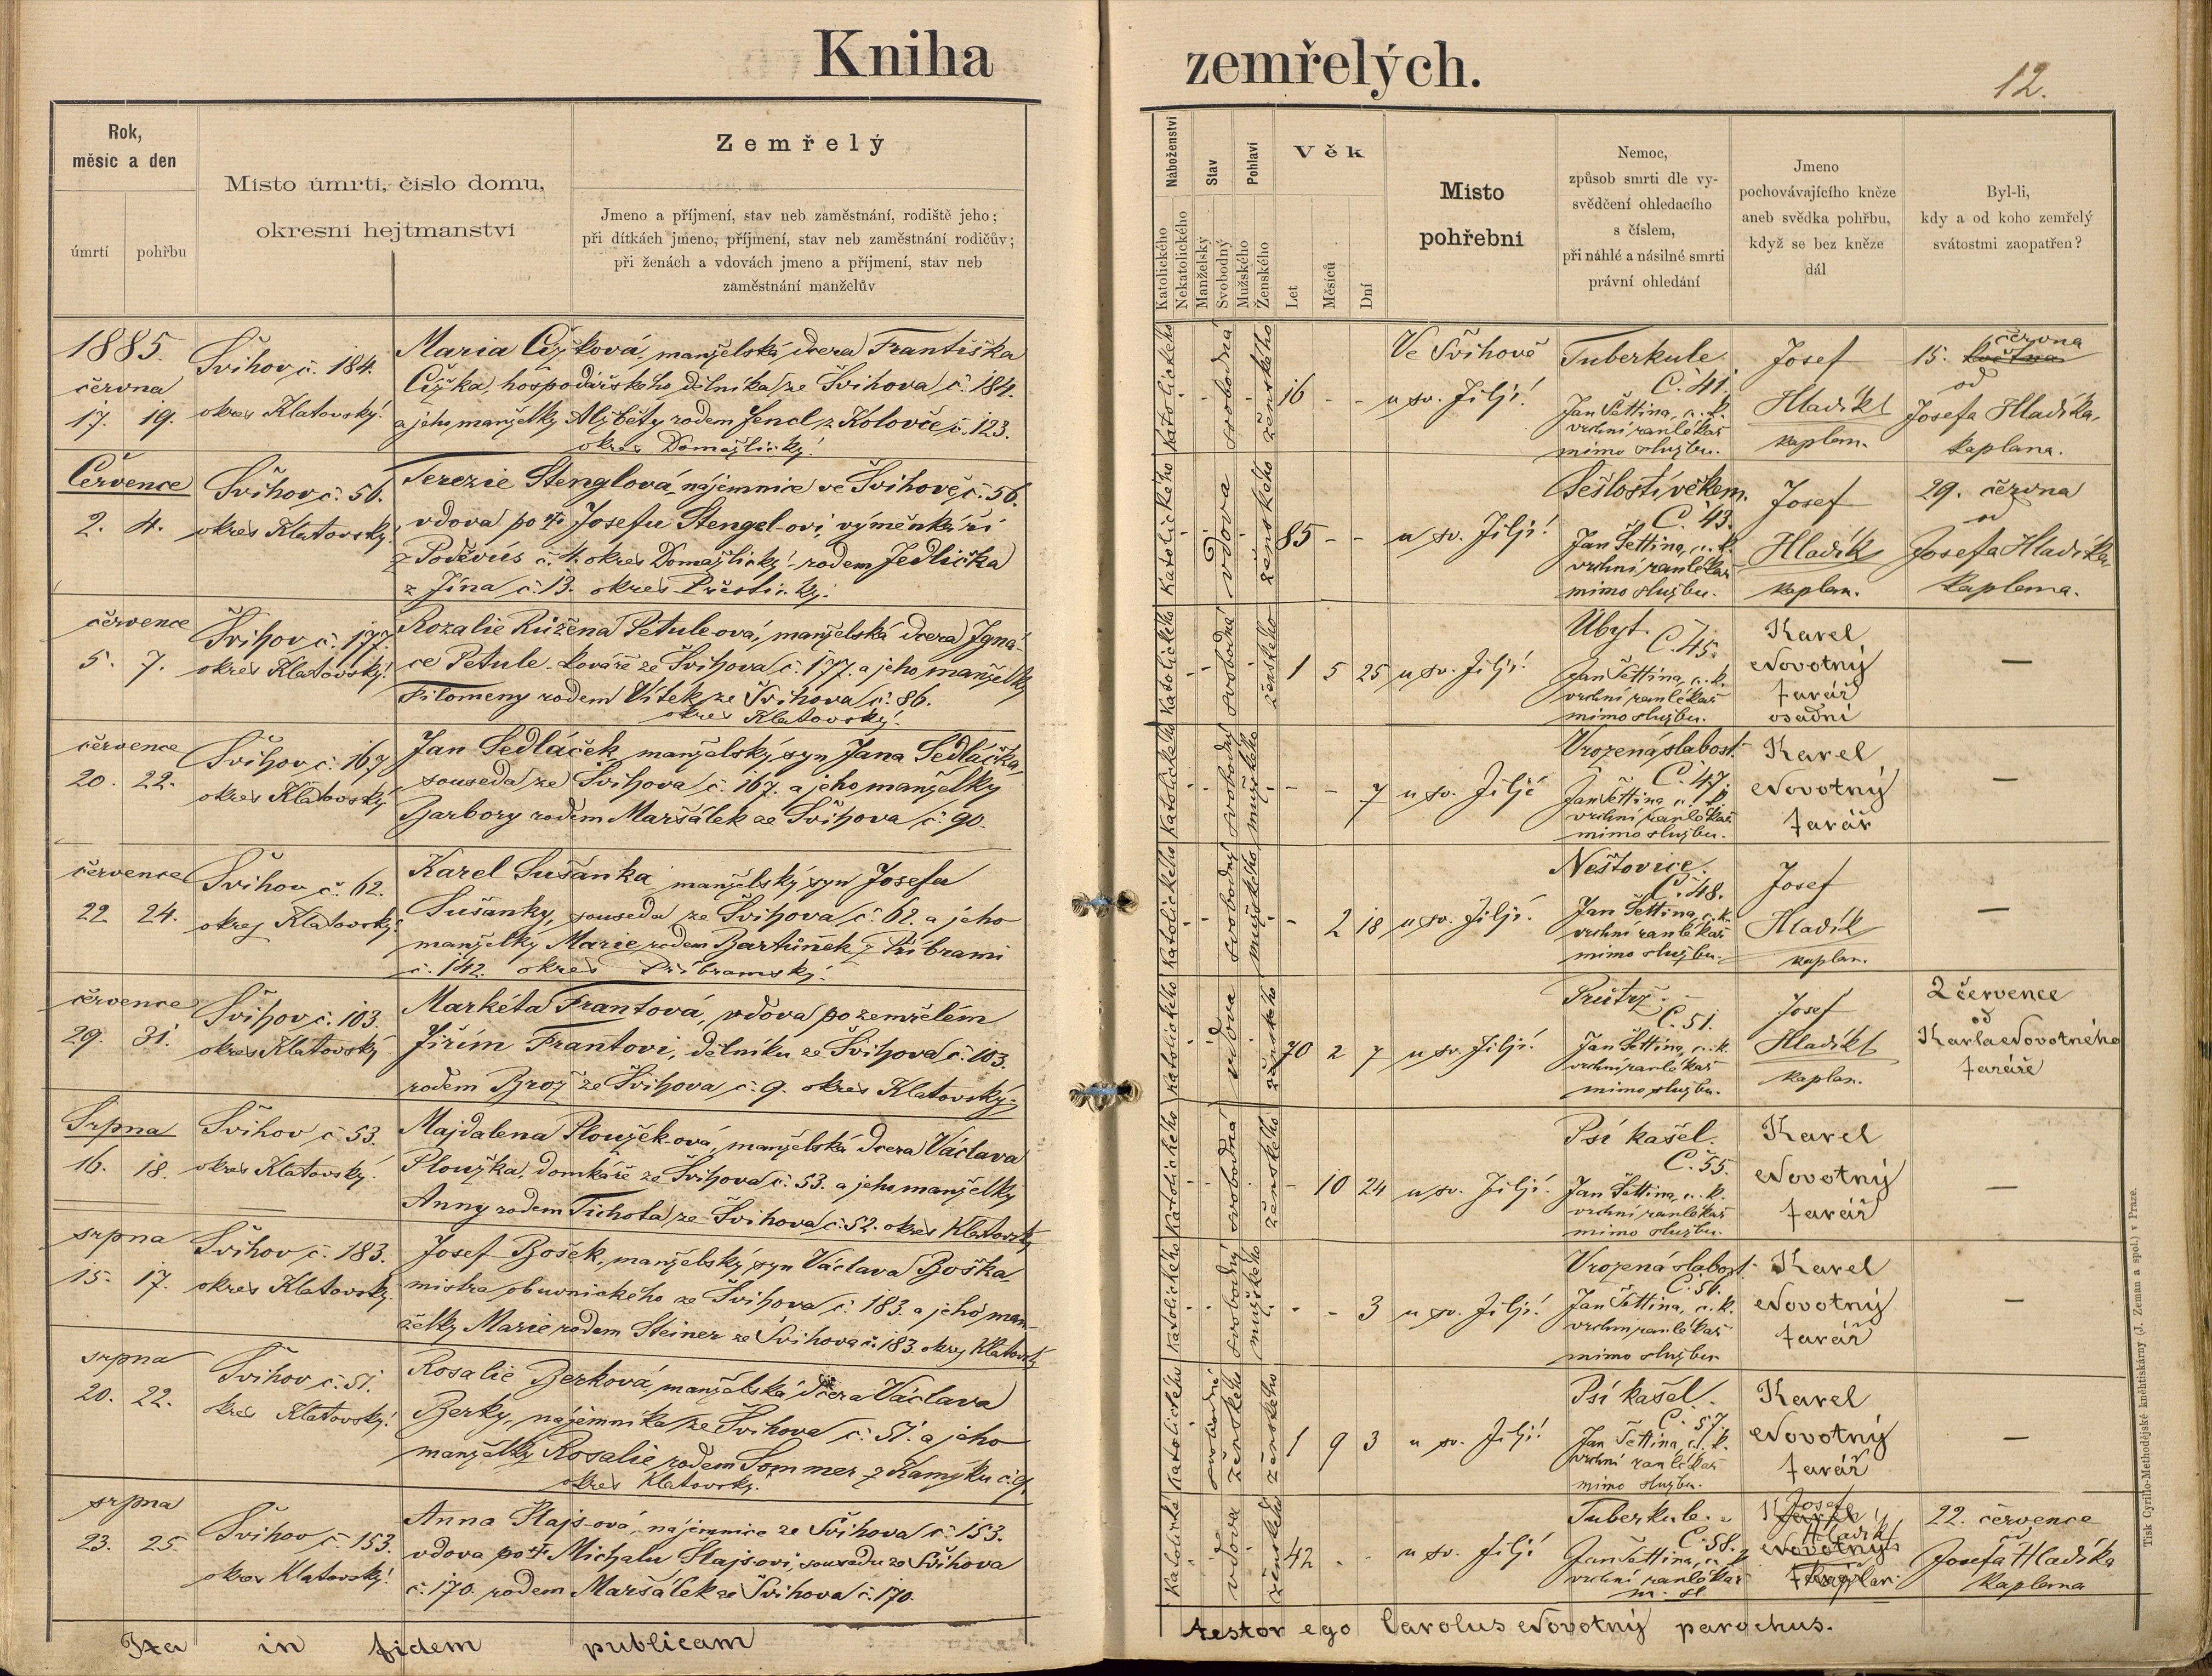 Kniha
zemřelých.
12.
Rok,
měsíc a den
úmrtí pohřbu
Místo úmrtí, číslo domu,
okresní hejtmanství
Zemřelý
Jmeno a příjmení, stav neb zaměstnání, rodiště jeho;
při dítkách jmeno, příjmení, stav neb zaměstnání rodičův;
při ženách a vdovách jmeno a příjmení, stav neb
zaměstnání manželův
Náboženství
Katolického
Nekatolického
Stav
Manželský
Svobodný
Pohlaví
Mužského
Ženského
Věk
Let
Měsíců
Dní
Místo
pohřební
Nemoc,
způsob smrti dle vy-
svědčení ohledacího
s číslem,
při náhlé a násilné smrti
právní ohledání
Jmeno
pochovávajícího kněze
aneb svědka pohřbu,
když se bez kněze
dál
Byl-li,
kdy a od koho zemřelý
svátostmi zaopatřen?
1885.
června
17. 19.
Švihov č. 184.
okres Klatovský.
Maria Čížková, manželská dcera Františka
Čížka, hospodářského dělníka ze Švihova č. 184.
a jeho manželky Alžběty rodem Jencl z Kolovče č. 123.
okres Domažlický.
katolického
svobodná
ženského
16 - -
Ve Švihově
u sv. Jiljí.
Tuberkule.
Č. 41.
Jan Šettina, c. k.
vrchní ranlékař
mimo službu.
Josef
Hladík
kaplan.
15. května června
od
Josefa Hladíka,
kaplana.
Července
2. 4.
Švihov č. 56.
okres Klatovský.
Terezie Stenglová, nájemnice ve Švihově č. 56.
vdova po † Josefu Stengel-ovi, výměnkáři
z Poděvús č. 4. okres Domažlický - rodem Jedlička
z Jína č. 13. okres Přeštický.
katolického
vdova
ženského
85 - -
u sv. Jiljí.
Sešlostí věkem.
Č. 43.
Jan Šettina, c. k.
vrchní ranlékař
mimo službu.
Josef
Hladík
kaplan.
29. června
od
Josefa Hladíka
kaplana.
července
5. 7.
Švihov č. 177.
okres Klatovský.
Rozalie Růžena Petule-ová, manželská dcera Igná-
ce Petule, kováře ze Švihova č. 177. a jeho manželky
Filomeny rodem Vítek ze Švihova č. 86.
okres Klatovský.
katolického
svobodná
ženského
1 5 25
u sv. Jiljí.
Úbyt.
Č. 45.
Jan Šettina, c. k.
vrchní ranlékař
mimo službu.
Karel
Novotný
farář
osadní
—
července
20. 22.
Švihov č. 167
okres Klatovský
Jan Sedláček, manželský syn Jana Sedláčka,
souseda ze Švihova č. 167. a jeho manželky
Barbory rodem Maršálek ze Švihova č. 90.
katolického
svobodný
mužského
- - 7
u sv. Jiljí
Vrozená slabost.
Č. 47.
Jan Šettina, c. k.
vrchní ranlékař
mimo službu.
Karel
Novotný
farář
—
července
22. 24.
Švihov č. 62.
okres Klatovský.
Karel Sušanka, manželský syn Josefa
Sušanky, souseda ze Švihova č. 62. a jeho
manželky Marie rodem Bartůněk z Příbrami
č. 142. okres Příbramský.
katolického
svobodný
mužského
- 2 18
u sv. Jiljí.
Neštovice.
Č. 48.
Jan Šettina, c. k.
vrchní ranlékař
mimo službu.
Josef
Hladík
kaplan.
—
července
29. 31.
Švihov č. 103.
okres Klatovský
Markéta Frantová, vdova po zemřelém
Jiřím Frantovi, dělníku ze Švihova č. 103.
rodem Brož ze Švihova č. 9. okres Klatovský.
katolického
vdova
ženského
70 2 7
u sv. Jiljí.
Průtrž.
Č. 51.
Jan Šettina, c. k.
vrchní ranlékař
mimo službu.
Josef
Hladík
kaplan.
2 července
od
Karla Novotného
faráře
Srpna
16. 18.
Švihov č. 53.
okres Klatovský.
Majdalena Ploužek-ová, manželská dcera Václava
Ploužka, domkáře ze Švihova č. 53. a jeho manželky
Anny rodem Tichota ze Švihova č. 52. okres Klatovský
katolického
svobodná
ženského
- 10 24
u sv. Jiljí.
Psí kašel.
Č. 55.
Jan Šettina, c. k.
vrchní ranlékař
mimo službu.
Karel
Novotný
farář
—
srpna
15. 17.
Švihov č. 183.
okres Klatovský.
Josef Bošek, manželský syn Václava Boška,
mistra obuvnického ze Švihova č. 183. a jeho man-
želky Marie rodem Steiner ze Švihova č. 183. okres Klatovský
katolického
svobodný
mužského
- - 3
u sv. Jiljí.
Vrozená slabost.
Č. 56.
Jan Šettina, c. k.
vrchní ranlékař
mimo službu
Karel
Novotný
farář
—
srpna
20. 22.
Švihov č. 51.
okres Klatovský.
Rosalie Berková, manželská dcera Václava
Berky, nájemníka ze Švihova č. 51. a jeho
manželky Rosalie rodem Sommer z Kamýku č. 9.
okres Klatovský.
katolického
svobodná
ženského
ženského
1 9 3
u sv. Jiljí
Psí kašel.
Č. 57.
Jan Šettina, c. k.
vrchní ranlékař
mimo službu.
Karel
Novotný
farář
—
srpna
23. 25.
Švihov č. 153.
okres Klatovský.
Anna Hajs-ová, nájemnice ze Švihova č. 153.
vdova po † Michalu Hajsovi, sousedu ze Švihova
č. 170. rodem Maršálek ze Švihova č. 170.
vdova
ženského
42 - -
u sv. Jiljí
Tuberkule.
Č. 58.
Jan Šettina, c. k.
vrchní ranlékař
m. sl.
Josef
Hladík
Novotný
kaplan.
22. července
od
Josefa Hladíka
kaplana
Ita in fidem publicam
testor ego Carolus Novotný parochus.
Tisk Cyrillo-Methodějské knihtiskárny (J. Zeman a spol.) v Praze.